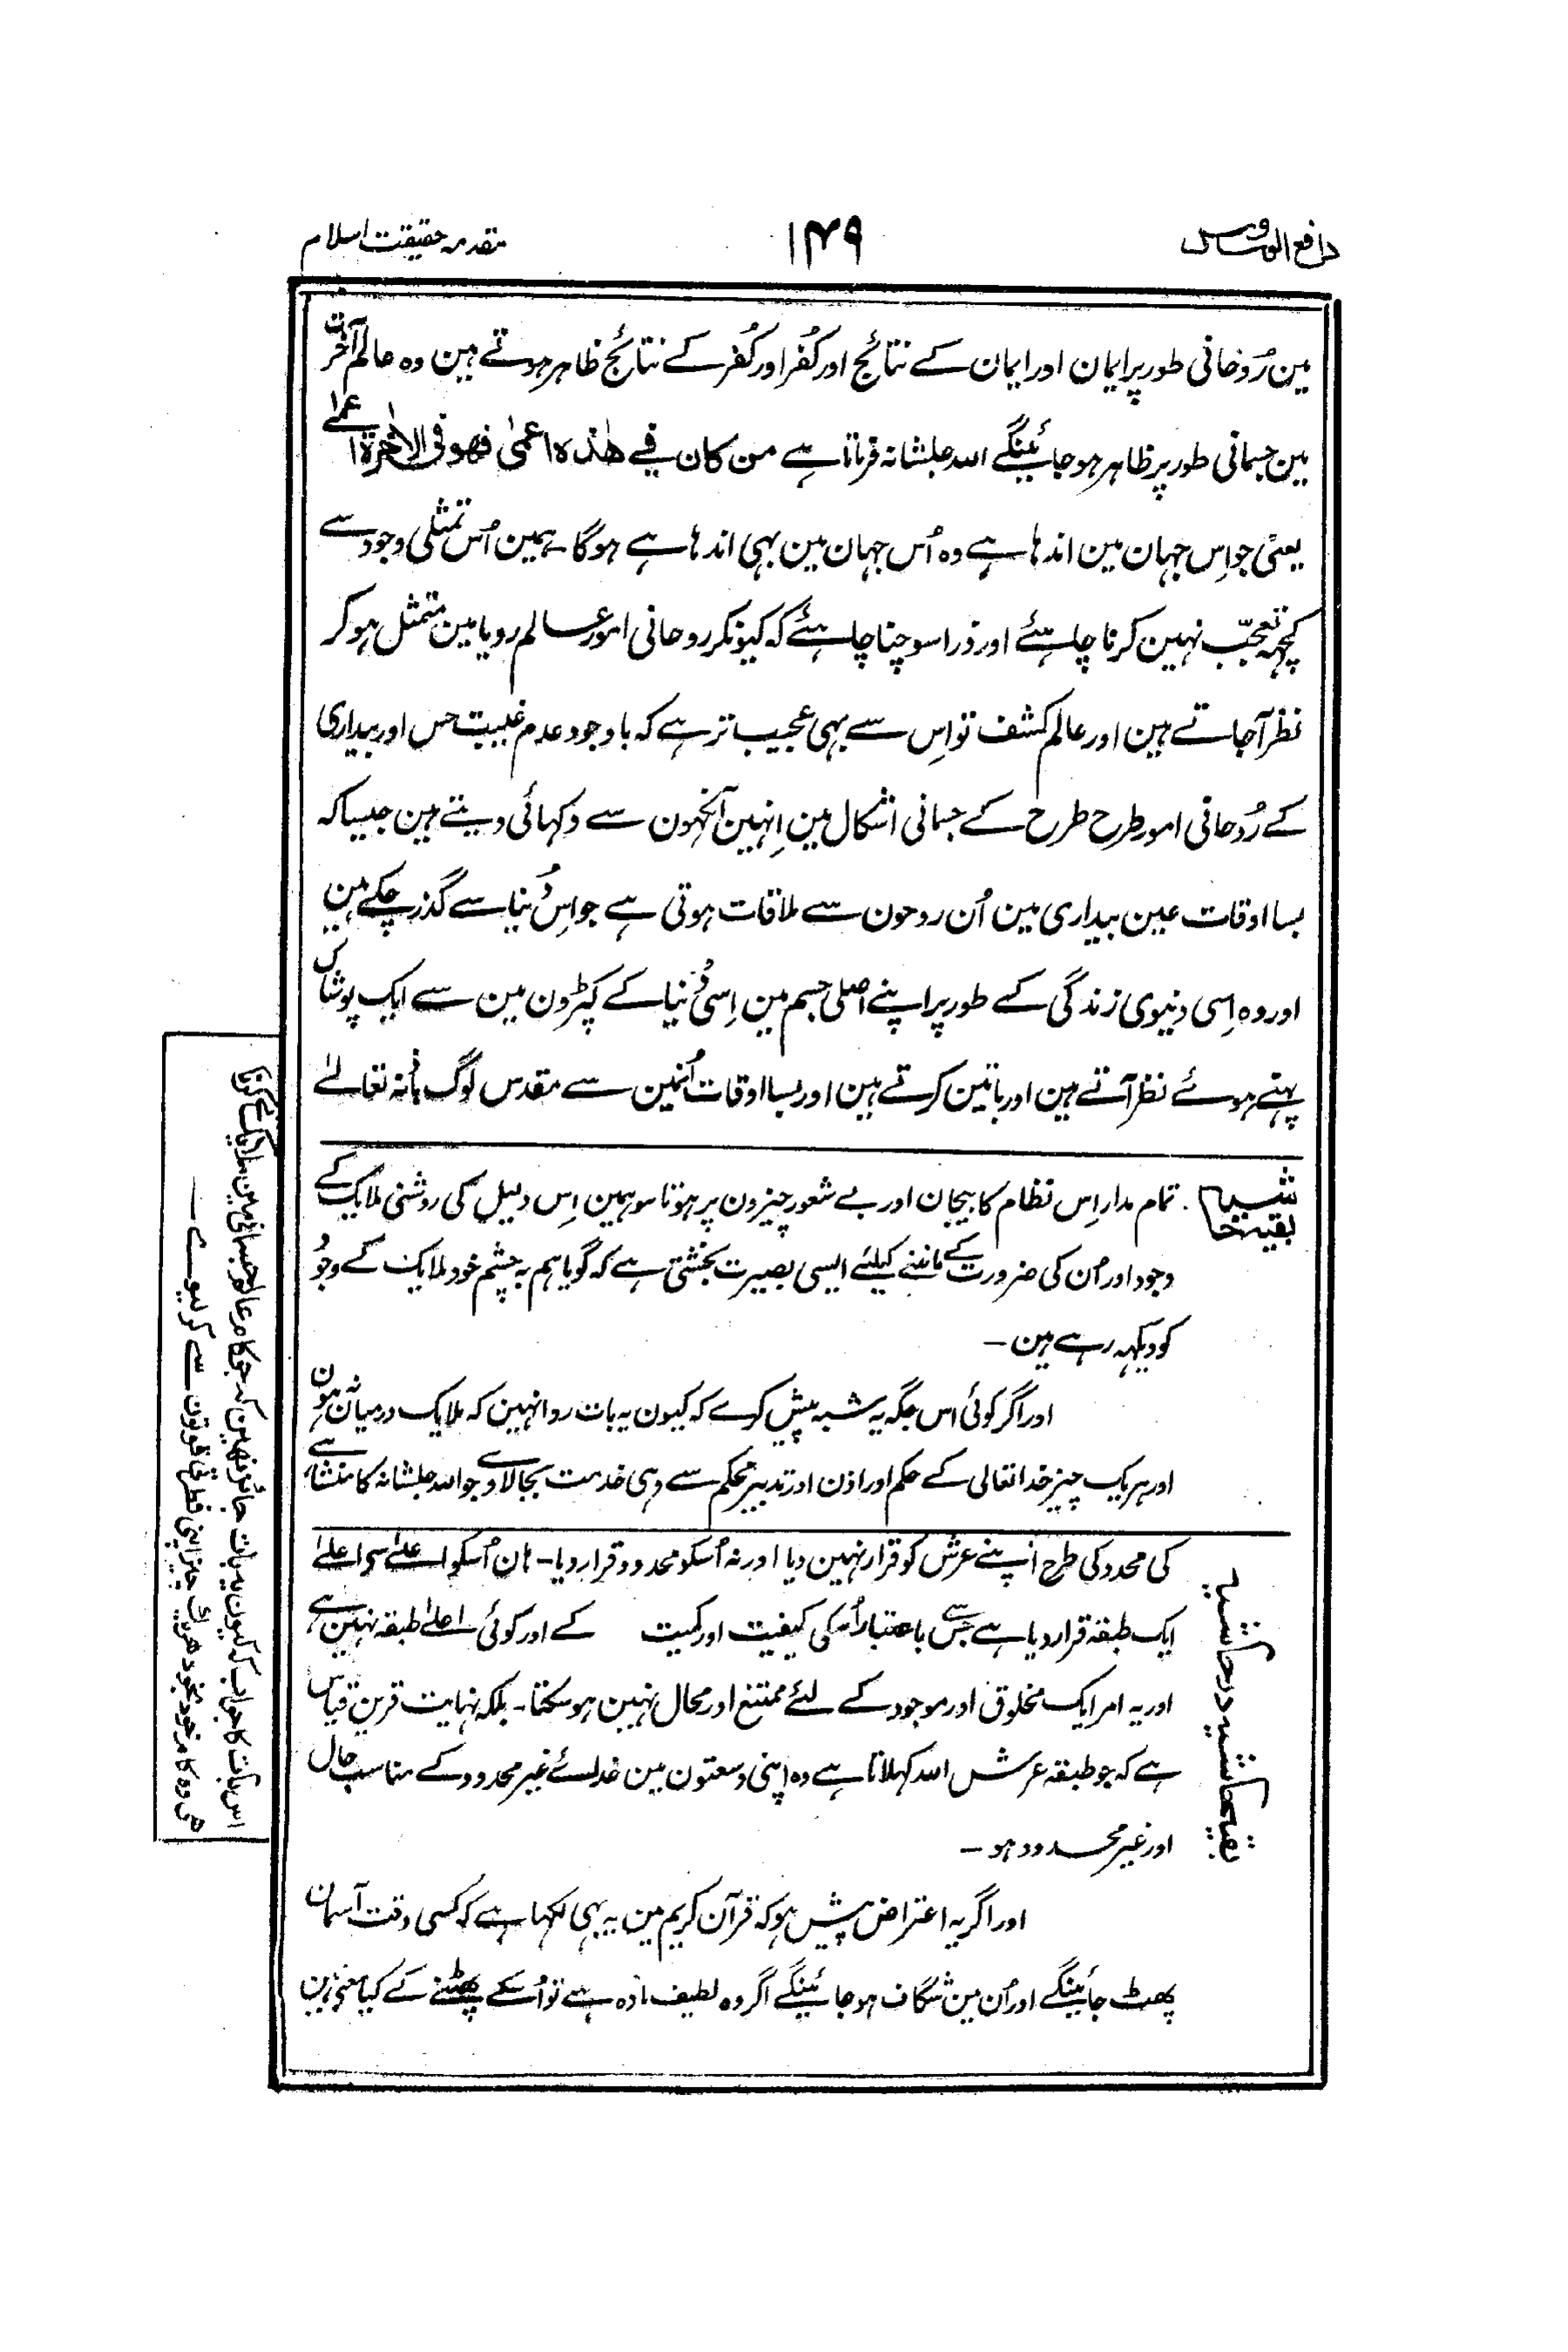 دافع الوساوس
۱۴۹
مقدمہ حقیقت اسلام
مین رُوحانی طور پر ایمان اور ایمان کے نتائج اور کُفر اور کُفر کے نتائج ظاہر ہوتے ہین وہ عالم آخرت
مین جسمانی طور پر ظاہر ہو جائینگے اللہ جلشانہ فرماتا ہے من کان فی ھٰذہ اعمیٰ فھو فی الاٰخرۃ اعمیٰ
یعنی جو اِس جہان مین اندہا ہے وہ اُس جہان مین بہی اندہا ہے ہوگا۔ ہمین اُس تمثلی وجود سے
کچہہ تعجّب نہین کرنا چاہئے اور ذرا سوچنا چاہئے کہ کیونکر روحانی امور عالم رویا مین متمثل ہو کر
نظر آجاتے ہین اور عالم کشف تو اِس سے بہی عجیب تر ہے کہ باوجود عدم غیبت حس اور بیداری
کے رُوحانی امور طرح طرح کے جسمانی اشکال مین اِنہین آنکہون سے دکہائی دیتے ہین جیسا کہ
بسا اوقات عین بیداری مین اُن روحون سے ملاقات ہوتی ہے جو اِس دُنیا سے گذر چکے ہین
اور وہ اِسی دنیوی زندگی کے طور پر اپنے اصلی جسم مین اِسی دُنیا کے کپڑون مین سے ایک پوشاک
پہنے ہوئے نظر آتے ہین اور باتین کرتے ہین اور بسا اوقات اُنمین سے مقدس لوگ باذنہ تعالےٰ
بقیہ حاشیہ
تمام مدار اِس نظام کا بیجان اور بے شعور چیزون پر ہوتا سو ہمین اِس دلیل کی روشنی ملایک کے
وجود اور اُن کی ضرورت کے ماننے کیلئے ایسی بصیرت بخشتی ہے کہ گویا ہم بہ چشم خود ملایک کے وجود
کو دیکہہ رہے ہین۔
اور اگر کوئی اس جگہ یہ شبہ پیش کرے کہ کیون یہ بات روا نہین کہ ملایک درمیان نہ ہون
اور ہر یک چیز خدا تعالی کے حکم اور اذن اور تدبیر محکم سے وہی خدمت بجالاوے جو اللہ جلشانہ کا منشاء ہے
بقیہ حاشیہ در حاشیہ
کی محدد کی طرح اپنے عرش کو قرار نہین دیا اور نہ اُسکو محدود قرار دیا۔ ہان اُسکو اعلےٰ سے اعلےٰ
ایک طبقہ قرار دیا ہے جس سے باعتبار اُسکی کیفیت اور کمیت کے اور کوئی اعلےٰ طبقہ نہین ہے
اور یہ امر ایک مخلوق اور موجود کے لئے ممتنع اور محال نہین ہو سکتا۔ بلکہ نہایت قرین قیاس
ہے کہ جو طبقہ عرش اللہ کہلاتا ہے وہ اپنی وسعتون مین خدائے غیر محدود کے مناسب حال
اور غیر محدود ہو۔
اور اگر یہ اعتراض پیش ہو کہ قرآن کریم مین یہ بہی لکہا ہے کہ کسی وقت آسمان
پھٹ جائینگے اور اُن مین شگاف ہو جائینگے اگر وہ لطیف مادہ ہے تو اُسکے پھٹنے کے کیا معنے ہین
اس بات کا جواب کہ کیون یہ بات جائز نہین کہ جو کام عالم جسمانی مین ملایک کے کرنا
ھی وہ کام خود بخود ھر یک چیز اپنی فطرتی قوتون سے کر لیوے۔